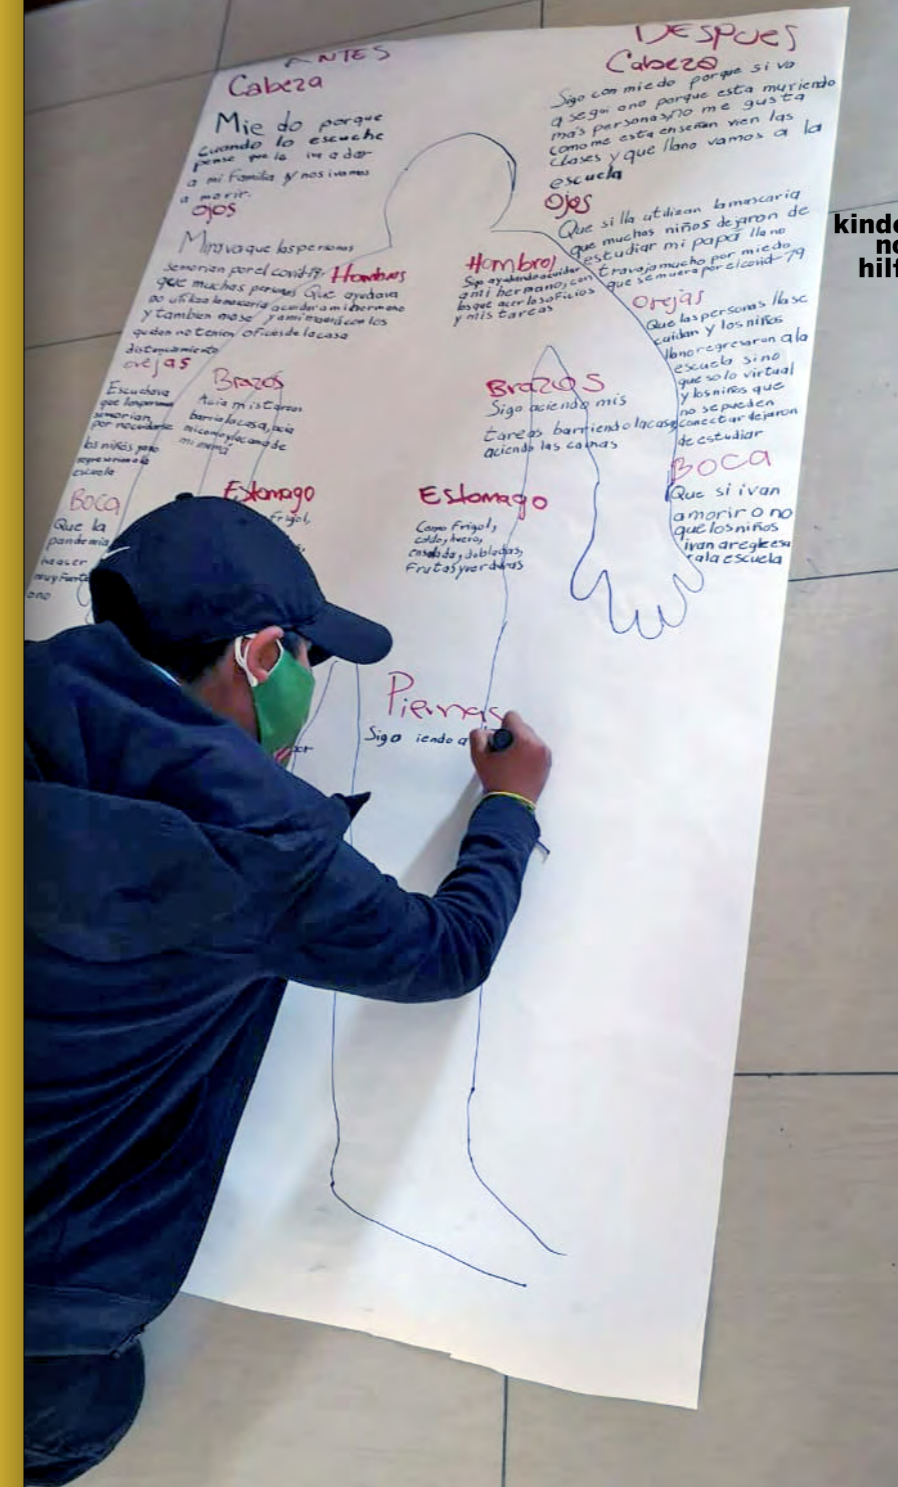 ANTES
Cabeza
Miedo porque
cuando lo escuche
pense que le iva a dar
a mi Familia y nos ivamos
a morir.
Ojos
Mirava que las personas
semorian por el covid-19.
que muchas personas
no utiliza la mascaria
y tambien mose
quedan no tenien
distanciamiento
Hombros
Que ayudava
a cuidar a mi hermano
y a mi mamá con los
oficios de la casa
orejas
Escuchava
que las personas
semorian
por no cuidarse
los niños ya no
regresarian a la
escuela
Brazos
Acia mis tareas
barria la casa, acia
mi cama y la cama de
mi mamá
Boca
Que la
pandemia
iva a ser
muy Fuerte
o no
Estomago
Frigol,
DESPUES
Cabeza
Sigo con miedo porque si va
a segui o no porque esta muriendo
mas personas, no me gusta
como me esta enseñan vien las
clases y que llano vamos a la
escuela
Ojos
Que si lla utilizan la mascaria
que muchos niños dejaron de
estudiar mi papá lla no
travaja mucho por miedo
que se muera por el covid-19
Hombros
Sigo ayudando a cuidar
a mi hermano, con
los que acer las oficios
y mis tareas
Orejas
Que las personas llase
cuidan y los niños
llano regresaron a la
escuela sino
que solo virtual
y los niños que
no se pueden
conectar dejaron
de estudiar
Brazos
Sigo aciendo mis
tareas barriendo la casa,
aciendo las camas
BOCA
Que si ivan
amorir o no
que los niños
ivan a regleesa
r a la escuela
Estomago
Como Frigol,
caldo, huevo,
ensalada, dobladas,
Frutas y verduras
Piernas
Sigo iendo a
kinde
no
hilf